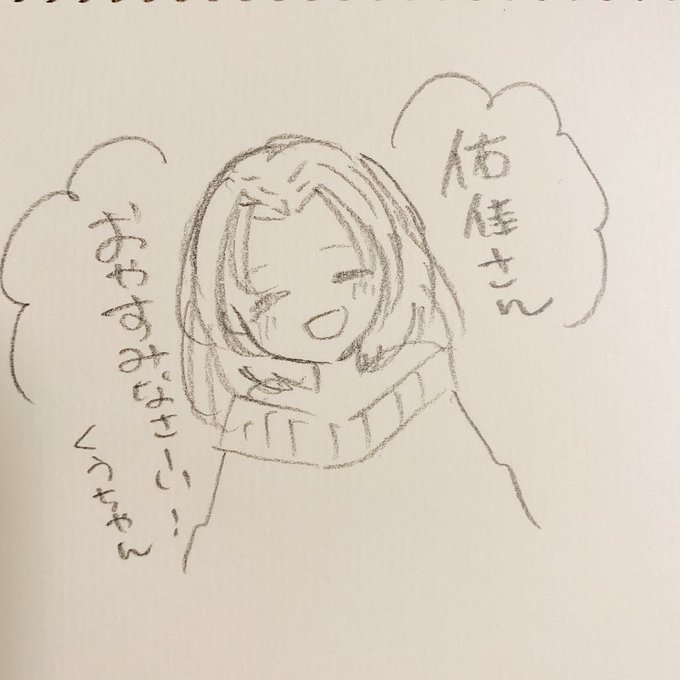 佑佳さん
おやすみなさい!
くぅちゃん